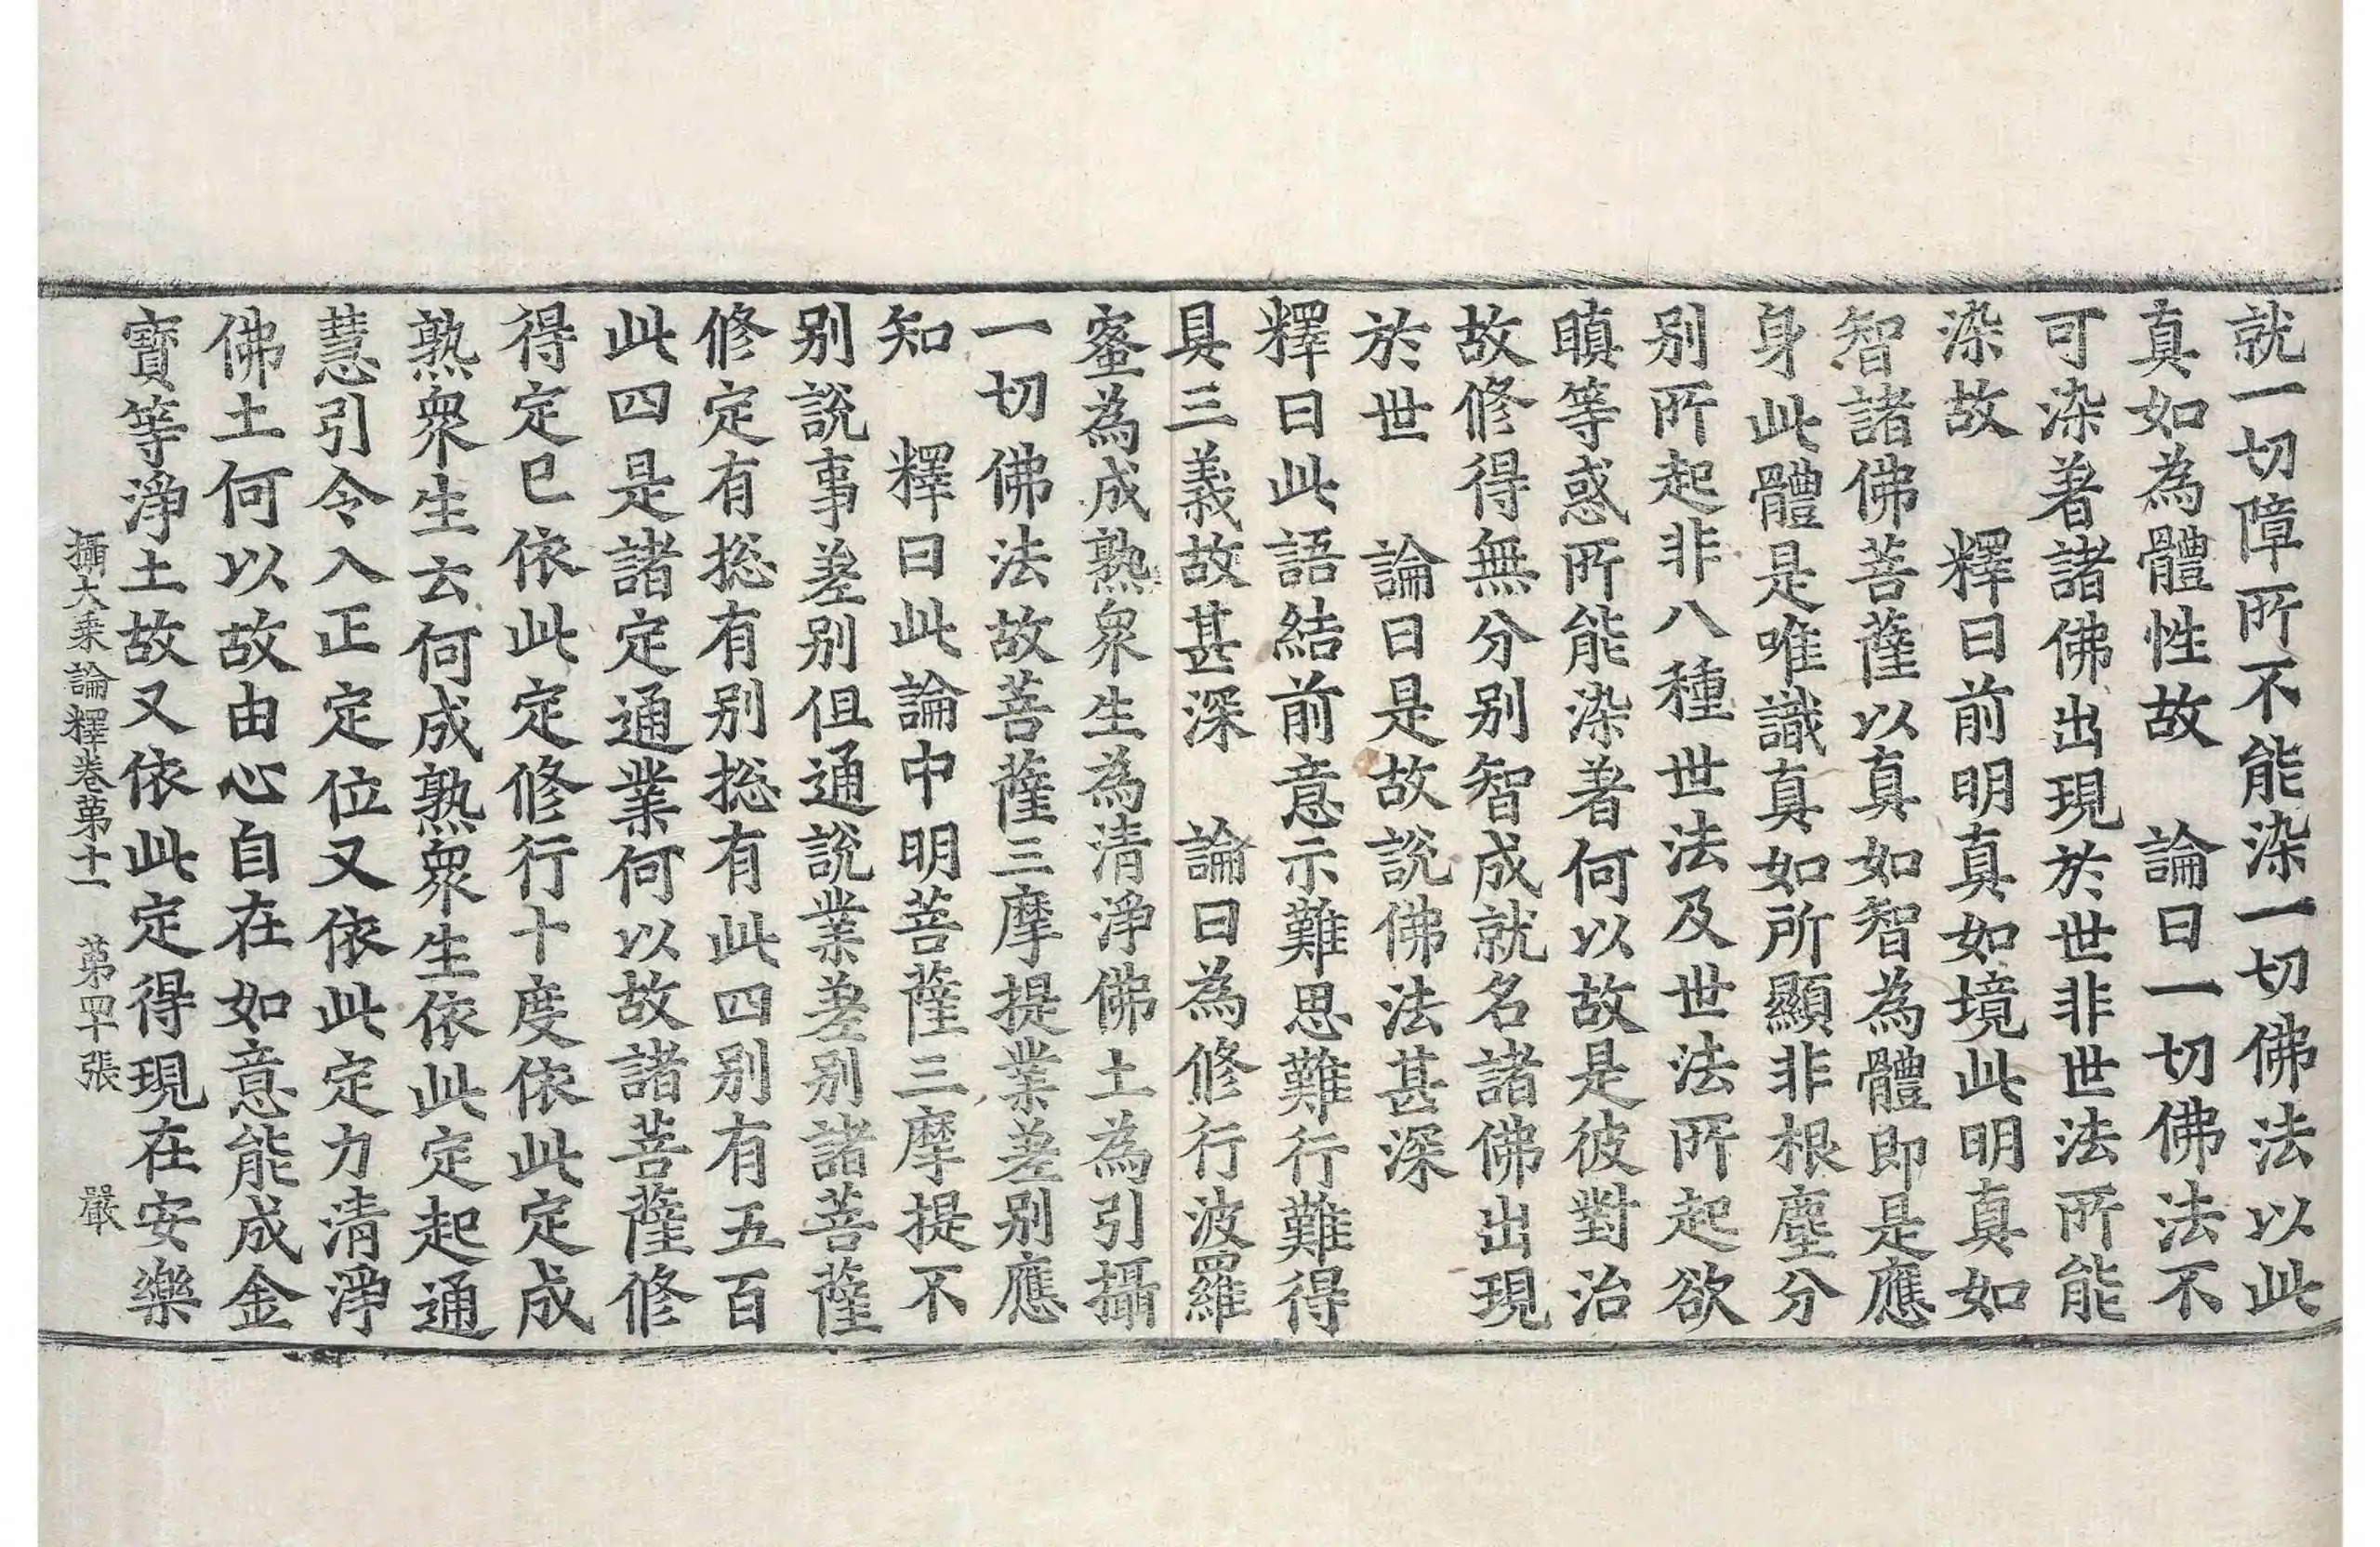 就一切障所不能染一切佛法以此
真如為體性故　論曰一切佛法不
可染著諸佛出現於世非世法所能
染故　釋曰前明真如境此明真如
智諸佛菩薩以真如智為體即是應
身此體是唯識真如所顯非根塵分
別所起非八種世法及世法所起欲
瞋等惑所能染著何以故是彼對治
故修得無分別智成就名諸佛出現
於世　論曰是故說佛法甚深
釋曰此語結前意示難思難行難得
具三義故甚深　論曰為修行波羅
蜜為成熟眾生為清淨佛土為引攝
一切佛法故菩薩三摩提業差別應
知　釋曰此論中明菩薩三摩提不
別說事差別但通說業差別諸菩薩
修定有揔有別揔有此四別有五百
此四是諸定通業何以故諸菩薩修
得定已依此定修行十度依此定成
熟眾生云何成熟眾生依此定起通
慧引令入正定位又依此定力清淨
佛土何以故由心自在如意能成金
寶等淨土故又依此定得現在安樂
攝大乘論釋卷第十一　第四十張　嚴